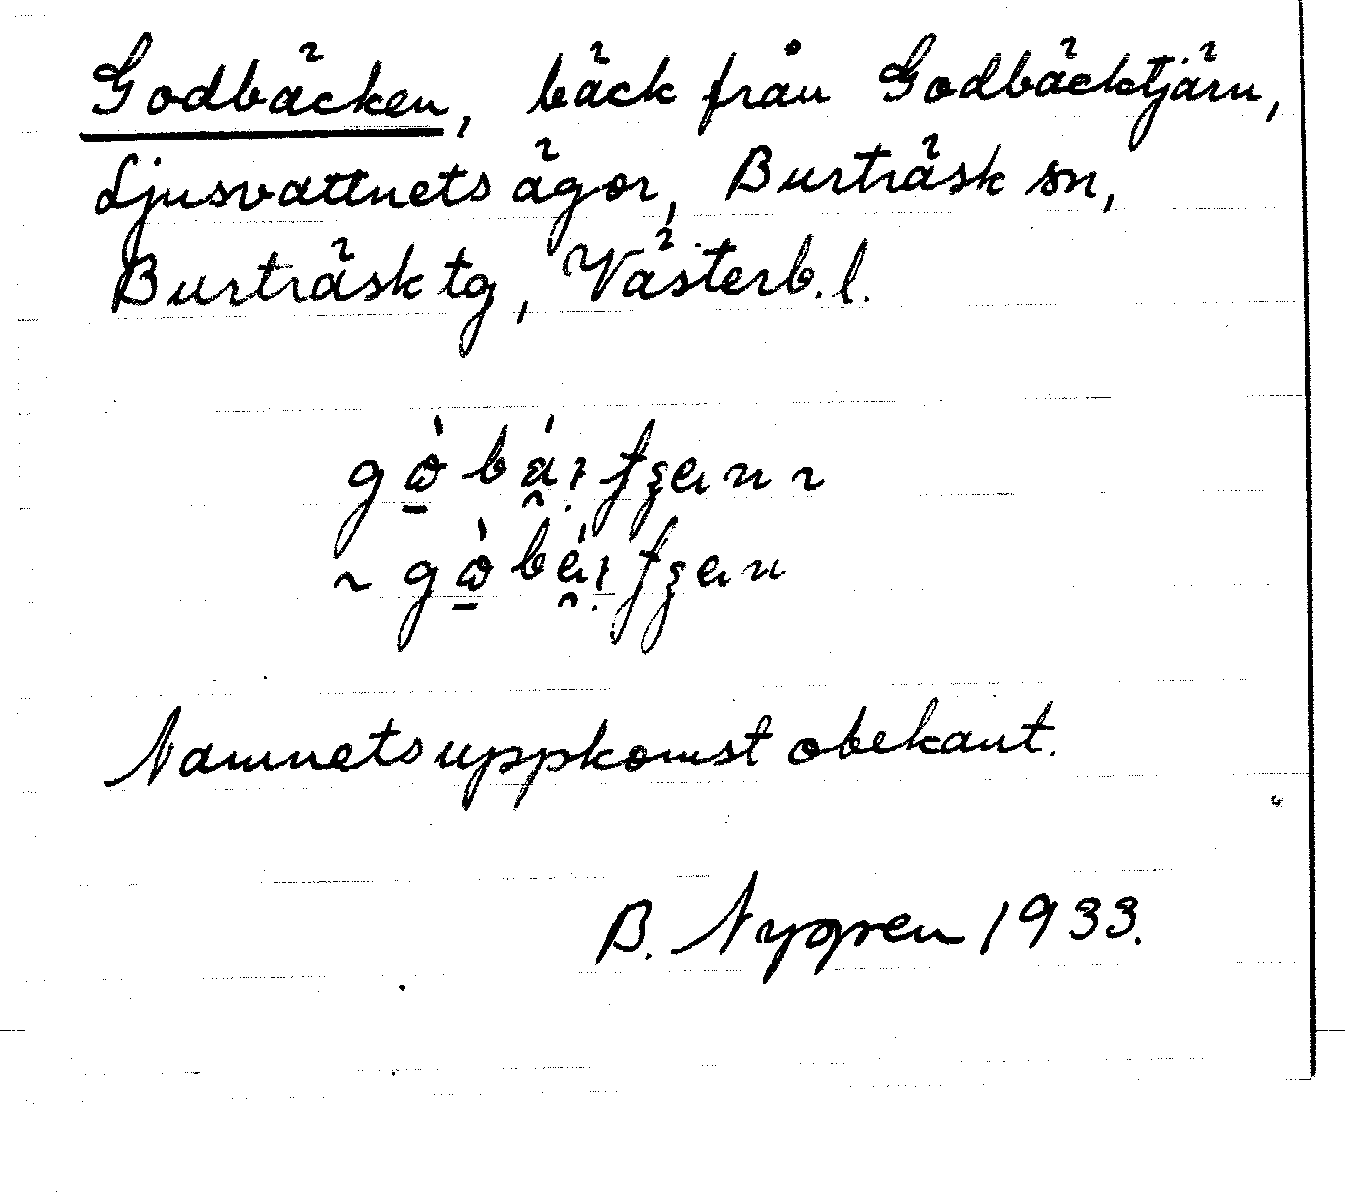 Godbäcken, bäck från Godbäcktjärn,
Ljusvattnets ägor, Burträsk sn,
Burträsk tg, Västerb. l.
Namnets uppkomst obekant.
B. Nygren 1933.